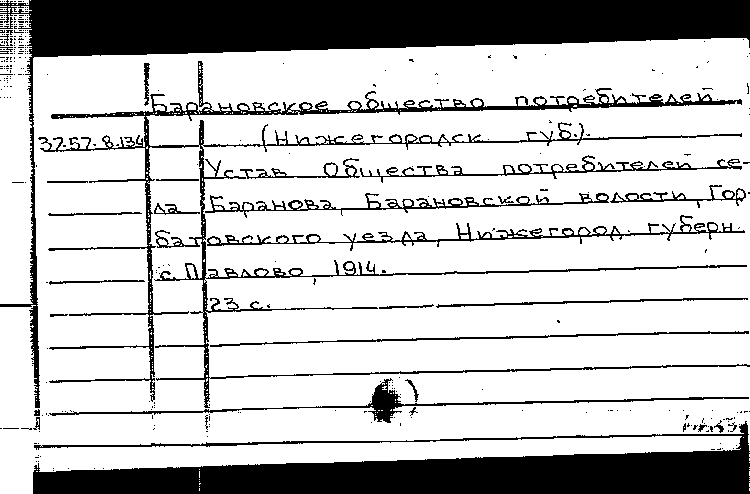 Барановское общество потребителей
37.57.8.134 (Нижегородск. губ.).
Устав Общества потребителей се-
ла Баранова, Барановской волости, Гор-
батовского уезда, Нижегород. губерн.
с. Павлово, 1914.
23 с.